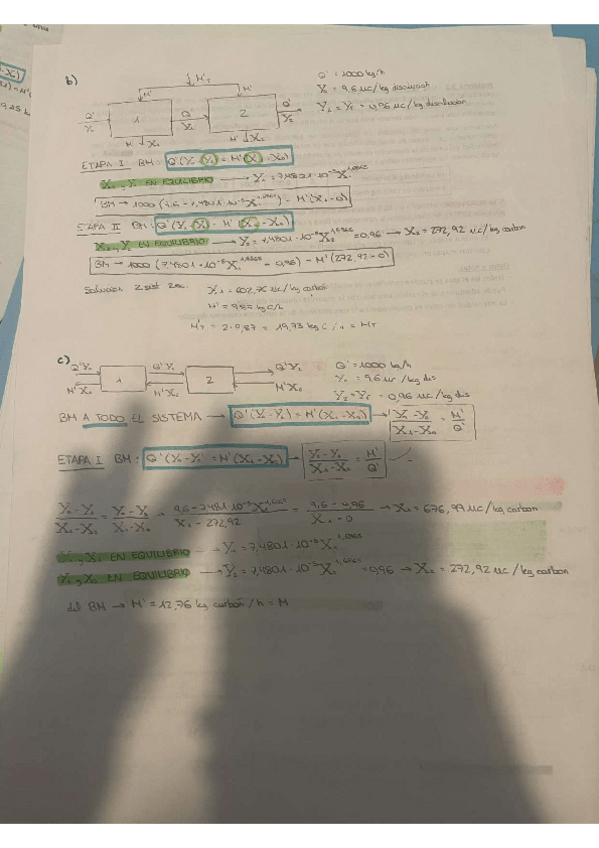 b)
M'T
M' M'
Q' Y0 1 Q' Y1 2 Q' Y2
M' X1 M' X2
Q' = 1000 kg/h
Y0 = 9,6 uc/kg disolvente
Y2 = Yf = 0,96 uc/kg disolución
ETAPA I BM: Q'(Y0-Y1) = M'(X1-X0)
X1 y Y1 EN EQUILIBRIO → Y1 = 7,4801·10⁻⁵X1^1,6865
BM → 1000 (9,6 - 7,4801·10⁻⁵X1^1,6865) = M'(X1-0)
ETAPA II BM: Q'(Y1-Y2) = M'(X2-X0)
X2 y Y2 EN EQUILIBRIO → Y2 = 7,4801·10⁻⁵X2^1,6865 = 0,96 → X2 = 272,92 uc/kg carbon
BM → 1000 (7,4801·10⁻⁵X1^1,6865 - 0,96) = M'(272,92-0)
Solución 2 sist 2ec. X1 = 602,76 uc/kg carbón
M' = kg C/h
M'T = 2· 9,87 = 19,73 kg C/h = MT
c)
Q'Y0 1 Q'Y1 2 Q'Y2
M'X1 M'X2 M'X0
Q' = 1000 kg/h
Y0 = 9,6 uc/kg dis
Y2 = Yf = 0,96 uc/kg dis
BM A TODO EL SISTEMA → Q'(Y0-Y2) = M'(X1-X0) → Y0-Y2 / X1-X0 = M' / Q'
ETAPA I BM: Q'(Y0-Y1) = M'(X1-X2) → Y0-Y1 / X1-X2 = M' / Q'
Y0-Y1 / X1-X2 = Y0-Y2 / X1-X0 → 9,6-7,4801·10⁻⁵X1^1,6865 / X1-272,92 = 9,6-0,96 / X1-0 → X1 = 676,99 uc/kg carbon
Y1 y X1 EN EQUILIBRIO → Y1 = 7,4801·10⁻⁵X1^1,6865
Y2 y X2 EN EQUILIBRIO → Y2 = 7,4801·10⁻⁵X2^1,6865 = 0,96 → X2 = 272,92 uc/kg carbon
del BM → M' = 12,76 kg carbón/h = M